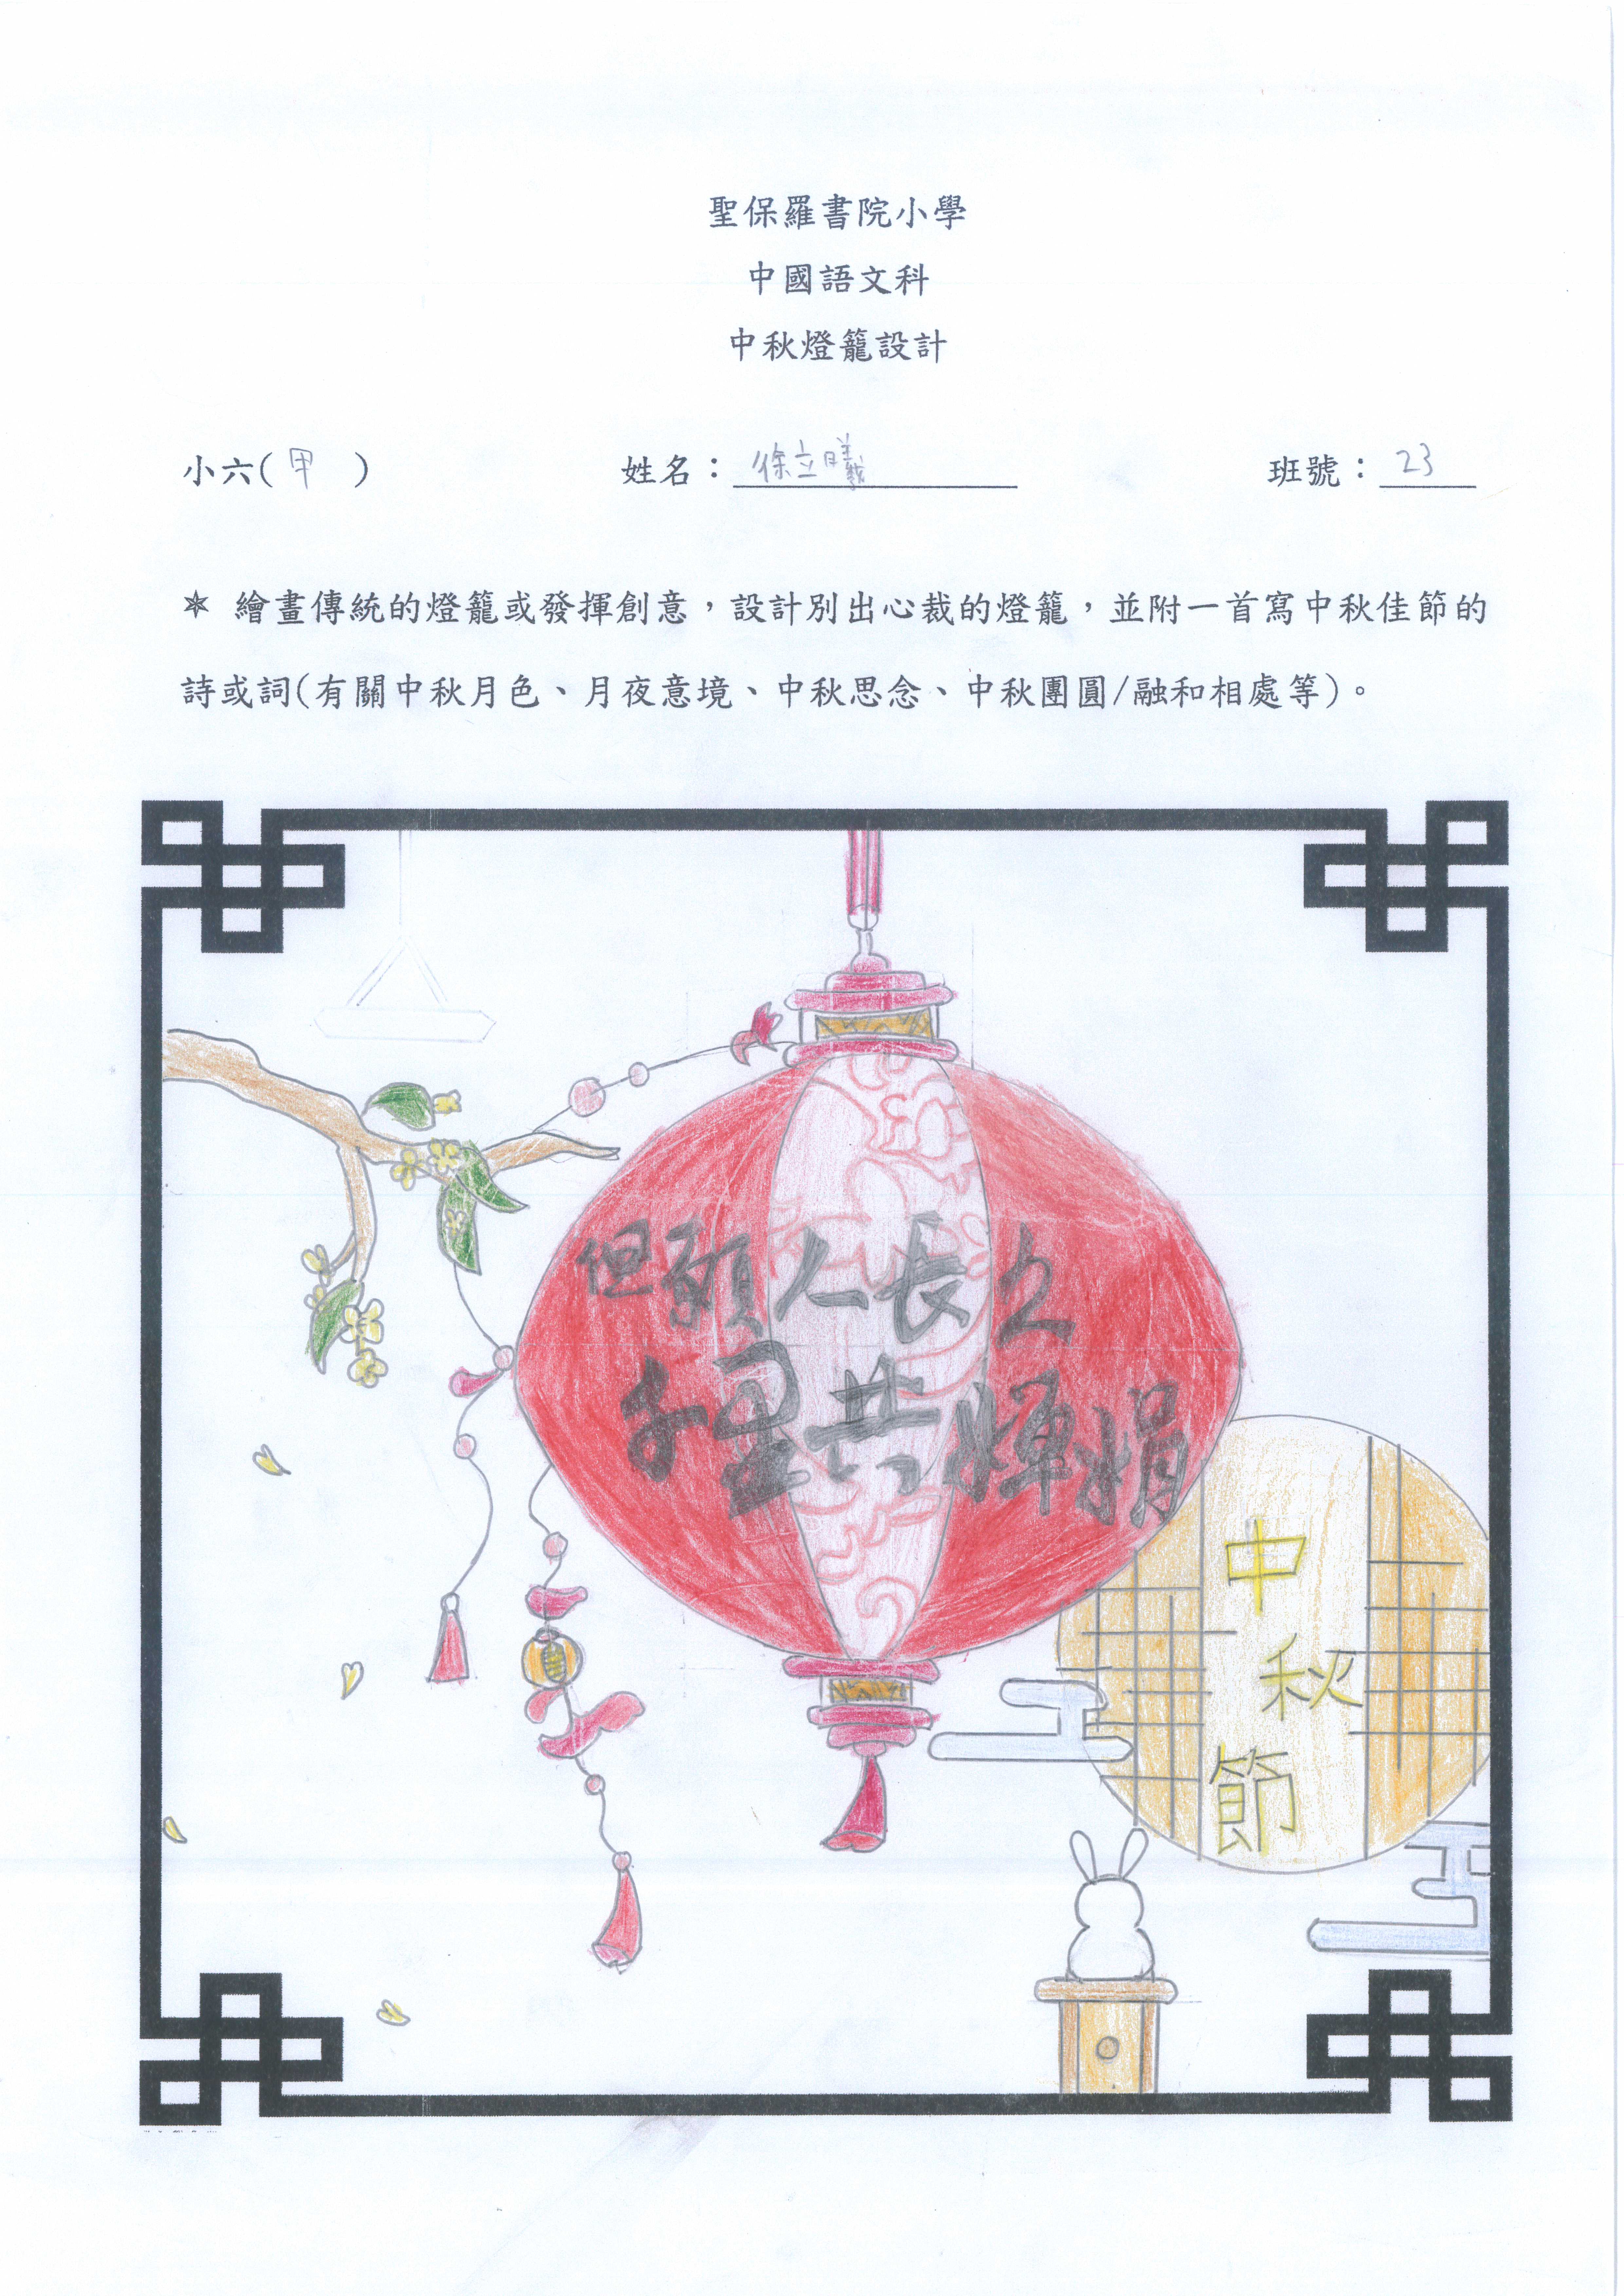 聖保羅書院小學
中國語文科
中秋燈籠設計
小六(甲 ) 姓名：徐立曦 班號：23
✶ 繪畫傳統的燈籠或發揮創意，設計別出心裁的燈籠，並附一首寫中秋佳節的
詩或詞(有關中秋月色、月夜意境、中秋思念、中秋團圓/融和相處等)。
但願人長久
千里共嬋娟
中
秋
節